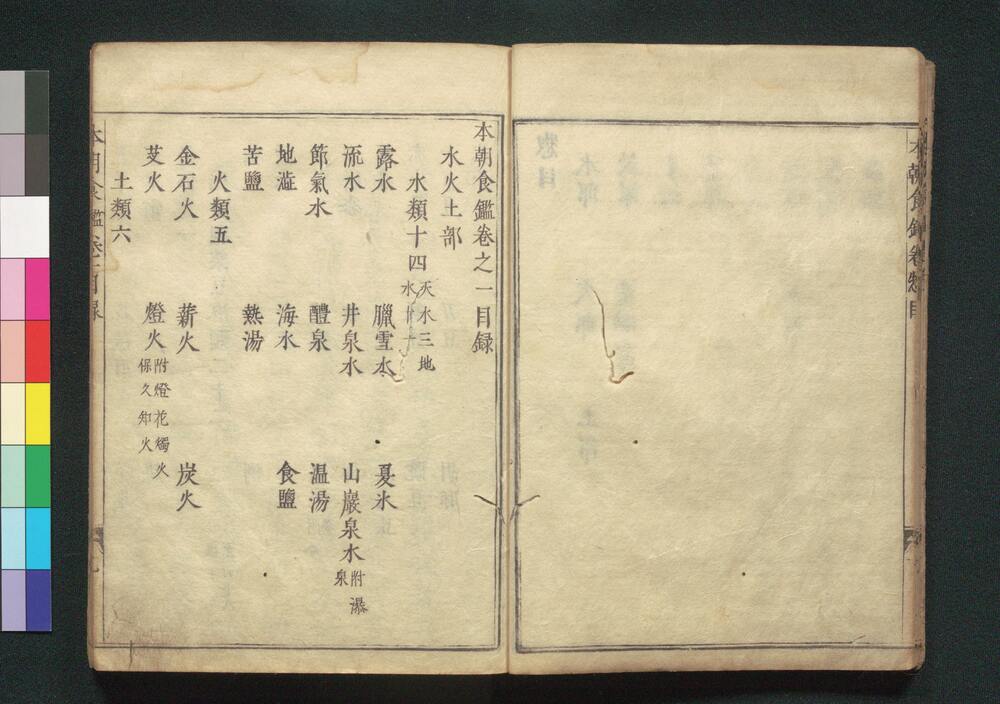 本朝食鑑卷之一目録
水火土部
水類十四 天水三地水十一
露水 臘雪水 夏氷
流水 井泉水 山巖泉水 附瀑泉
節氣水 醴泉 温湯
地漿 海水 食鹽
苦鹽 熱湯
火類五
金石火 薪火 炭火
艾火 燈火 附燈花燭火保久知火
土類六